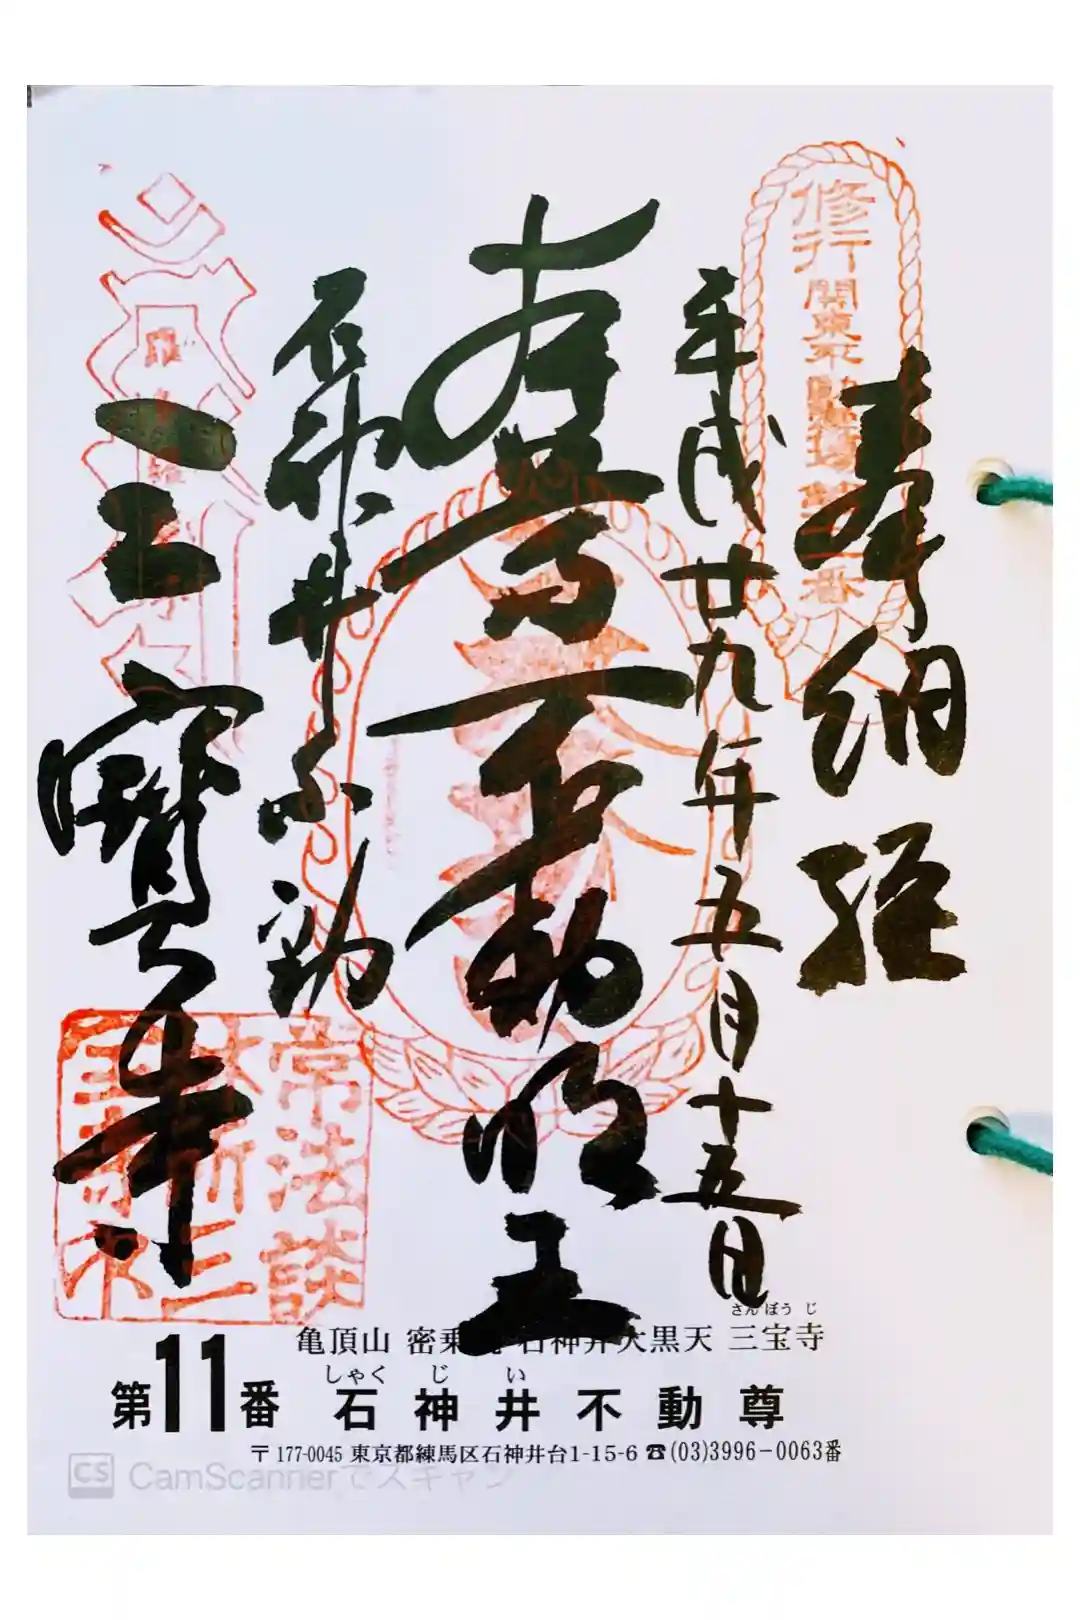 修行
関東不動霊場第十一番
奉納経
平成廿九年五月十五日
本尊不動明王
石神井不動
三寶寺
常法談
林所三
さんぼうじ
亀頂山 密乗院 石神井大黒天 三宝寺
しゃくじい
第11番 石神井不動尊
〒177-0045 東京都練馬区石神井台1-15-6 ☎(03)3996-0063番
CS CamScannerでスキャン